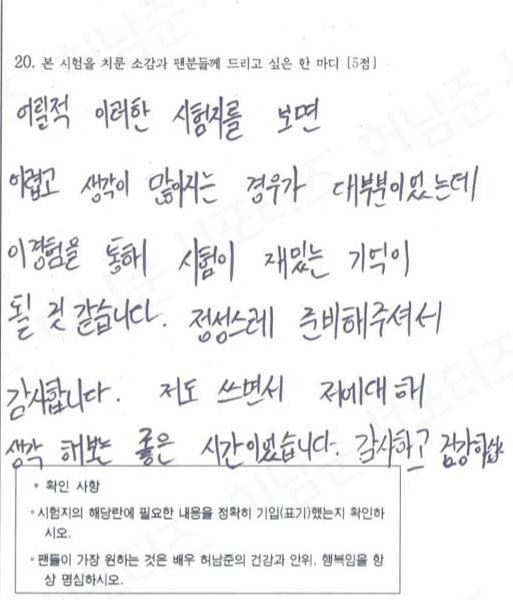 20. 본 시험을 치룬 소감과 팬분들께 드리고 싶은 한 마디 [5점]
어릴적 이러한 시험지를 보면
어렵고 생각이 많아지는 경우가 대부분이었는데
이경험을 통해 시험이 재밌는 기억이
될 것 같습니다. 정성스레 준비해주셔서
감사합니다. 저도 쓰면서 저에대해
생각 해보는 좋은 시간이었습니다. 감사하고
* 확인 사항
◦시험지의 해당란에 필요한 내용을 정확히 기입(표기)했는지 확인하
시오.
◦팬들이 가장 원하는 것은 배우 허남준의 건강과 안위, 행복임을 항
상 명심하시오.
허남준 서포터즈